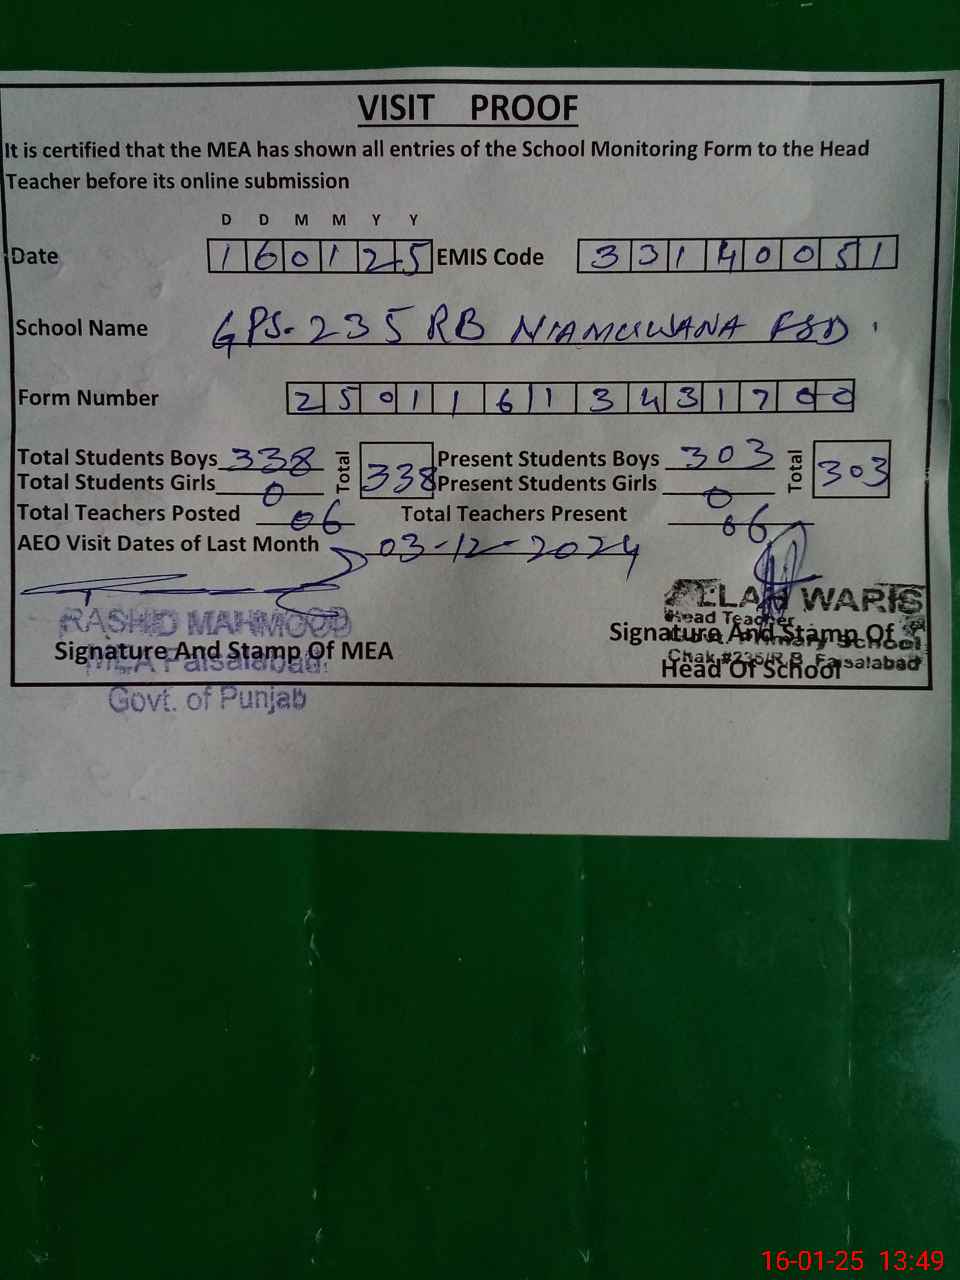 VISIT PROOF
It is certified that the MEA has shown all entries of the School Monitoring Form to the Head
Teacher before its online submission
D D M M Y Y
Date 160125 EMIS Code 33140051
School Name GPS-235 RB NIAMUWANA FSD
Form Number 25011613431700
Total Students Boys 338 Total 338 Present Students Boys 303 Total 303
Total Students Girls 0 Present Students Girls 0
Total Teachers Posted 06 Total Teachers Present 06
AEO Visit Dates of Last Month 03-12-2024
RASHID MAHMOOD
Signature And Stamp Of MEA
MEA Faisalabad.
Govt. of Punjab
WARIS
Head Teacher
Signature And Stamp Of
Govt. Primary School
Chak #235/R.B. Faisalabad
Head Of School
16-01-25 13:49